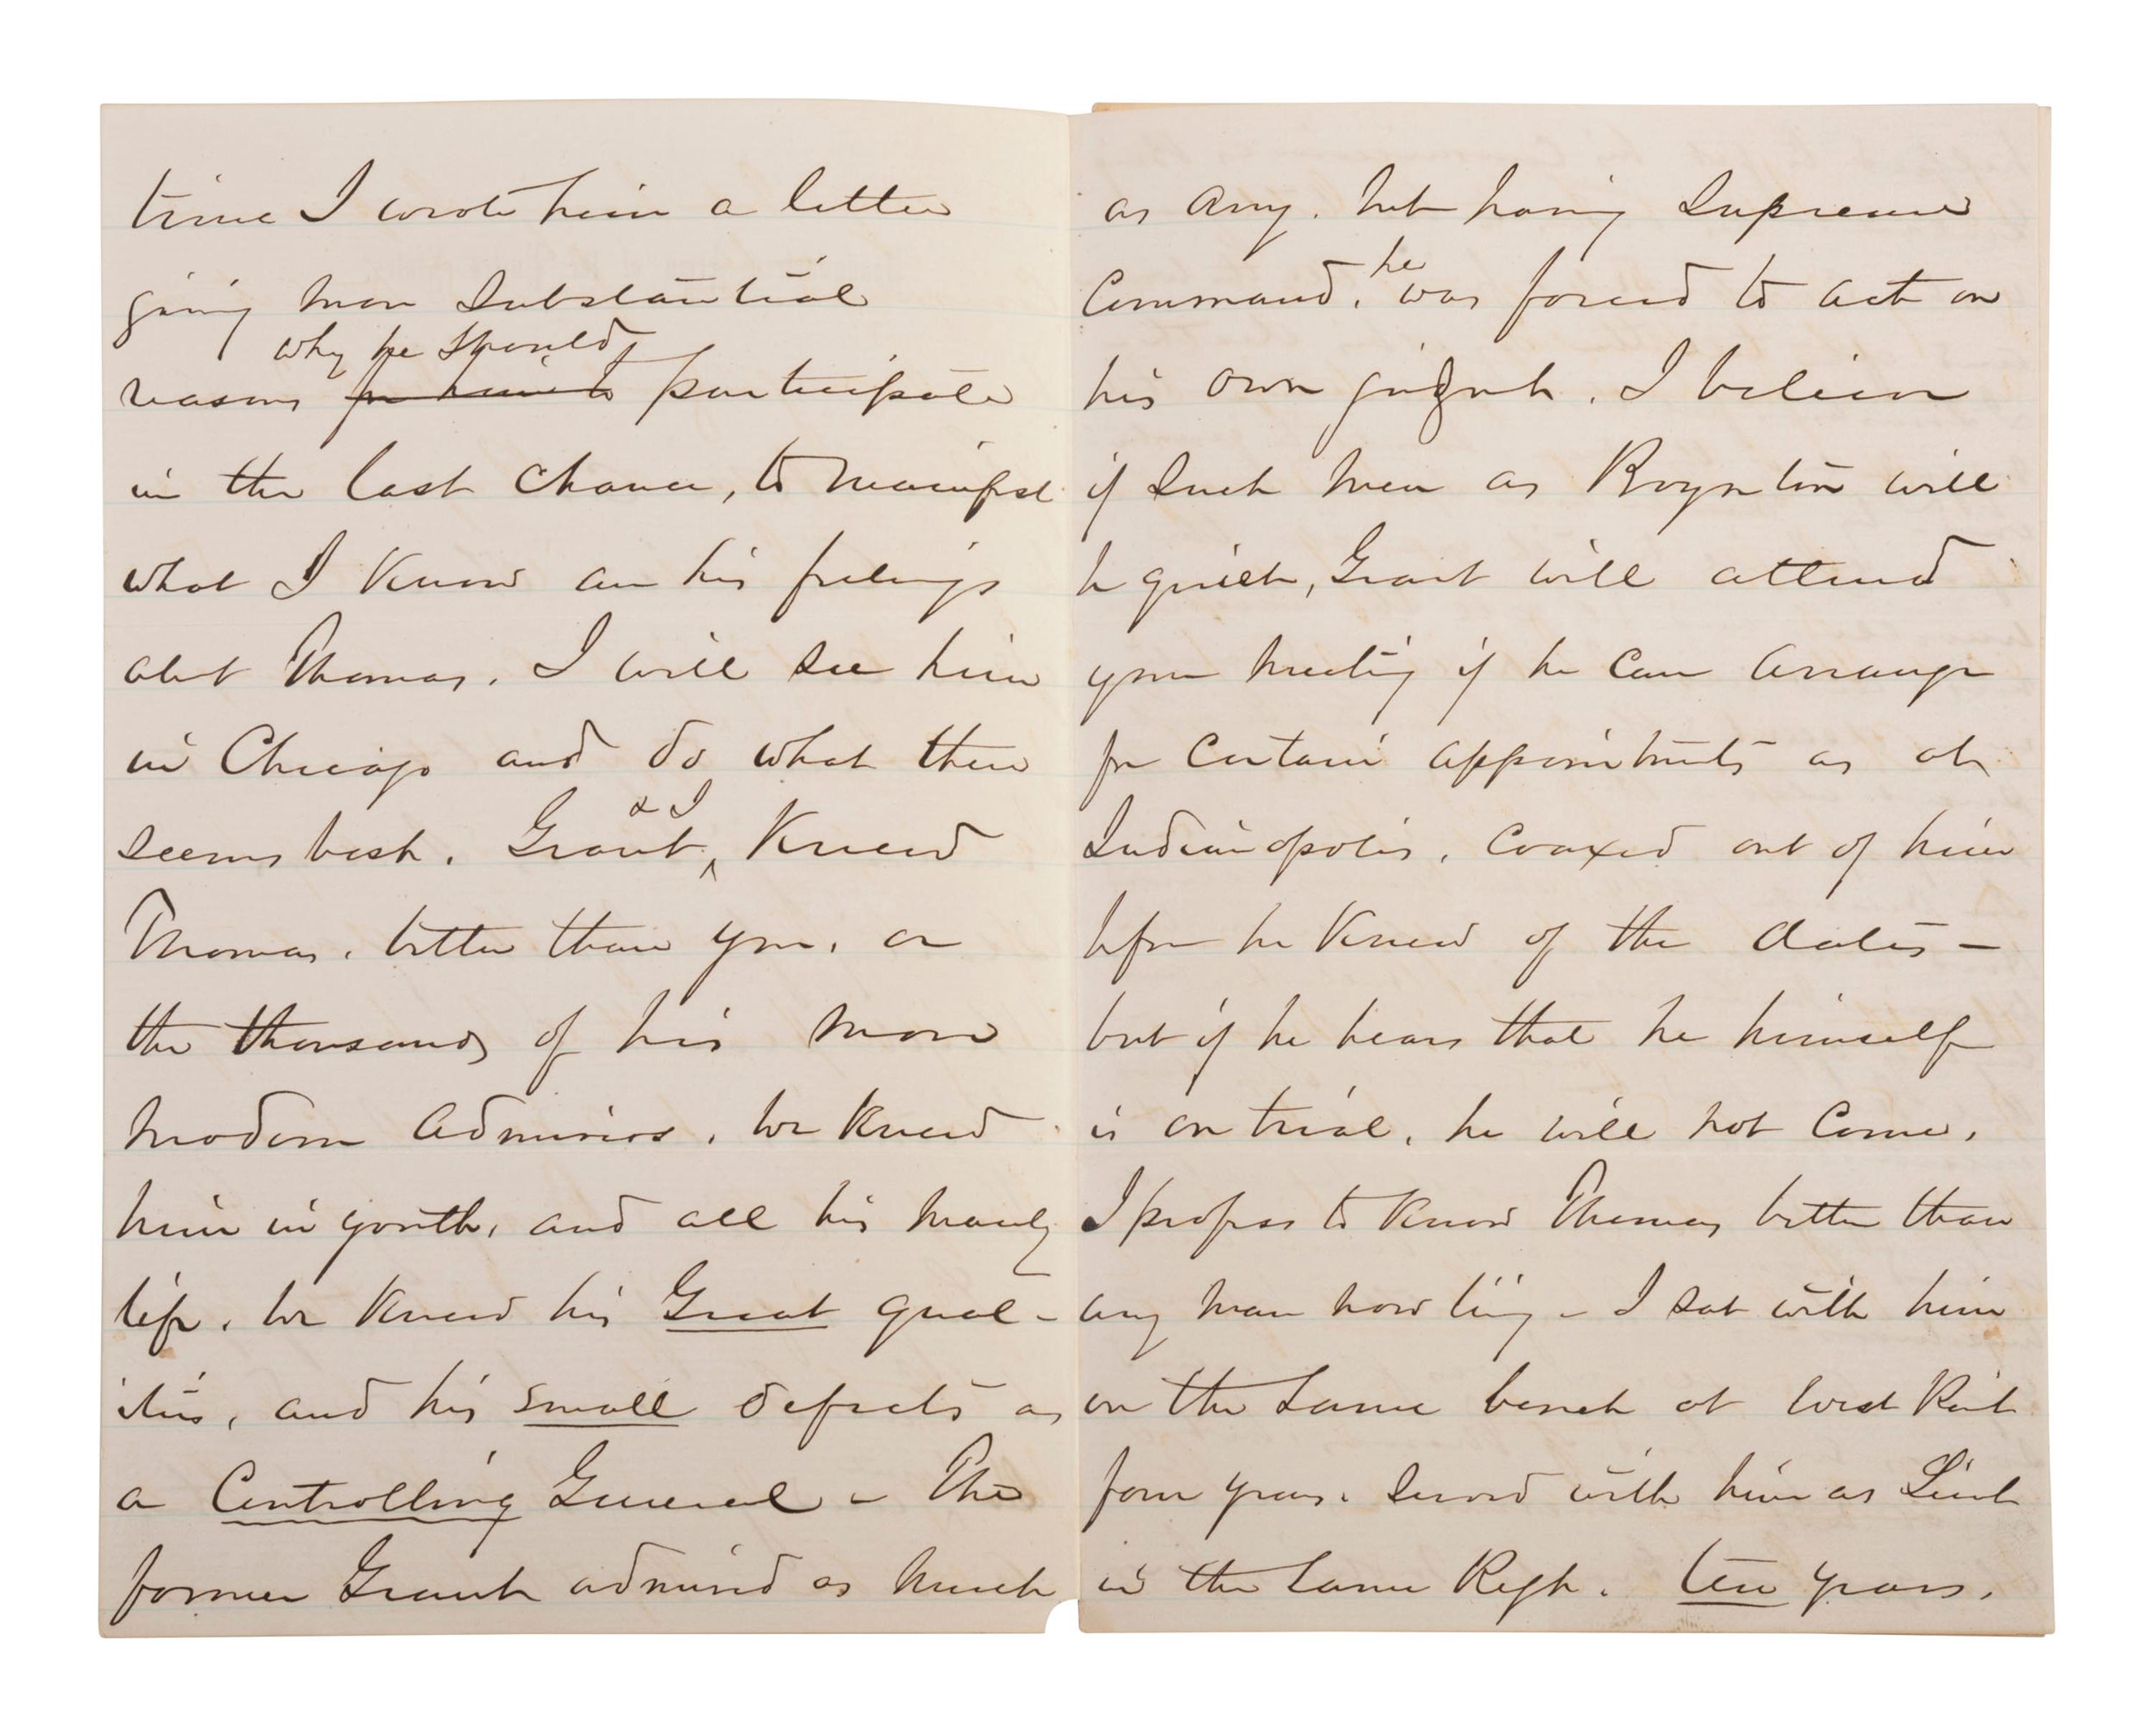 time I wrote him a letter
giving more substantial
why he should
reasons for him to participate
in the last chance, to manifest
what I know are his feelings
abt Thomas. I will see him
in Chicago and do what then
& I
seems best. Grant ^ Knew
Thomas, better than you, or
the thousands of his more
modern admirers, we knew
him in youth, and all his manly
life, we knew his Great qual-
ities, and his small defects as
a Controlling General - The
former Grant admired as much
as any, but having Supreme
he
Command, was forced to act on
his own judgmt. I believe
if such men as Boynton will
be quiet, Grant will attend
your meeting if he can arrange
for certain appointmts as at
Indianapolis, coaxed out of him
before he knew of the dates -
but if he hears that he himself
is on trial, he will not come,
I profess to know Thomas better than
any man now livg - I sat with him
on the same bench at West Point
four years, served with him as Lieut
in the same Regt. ten years,